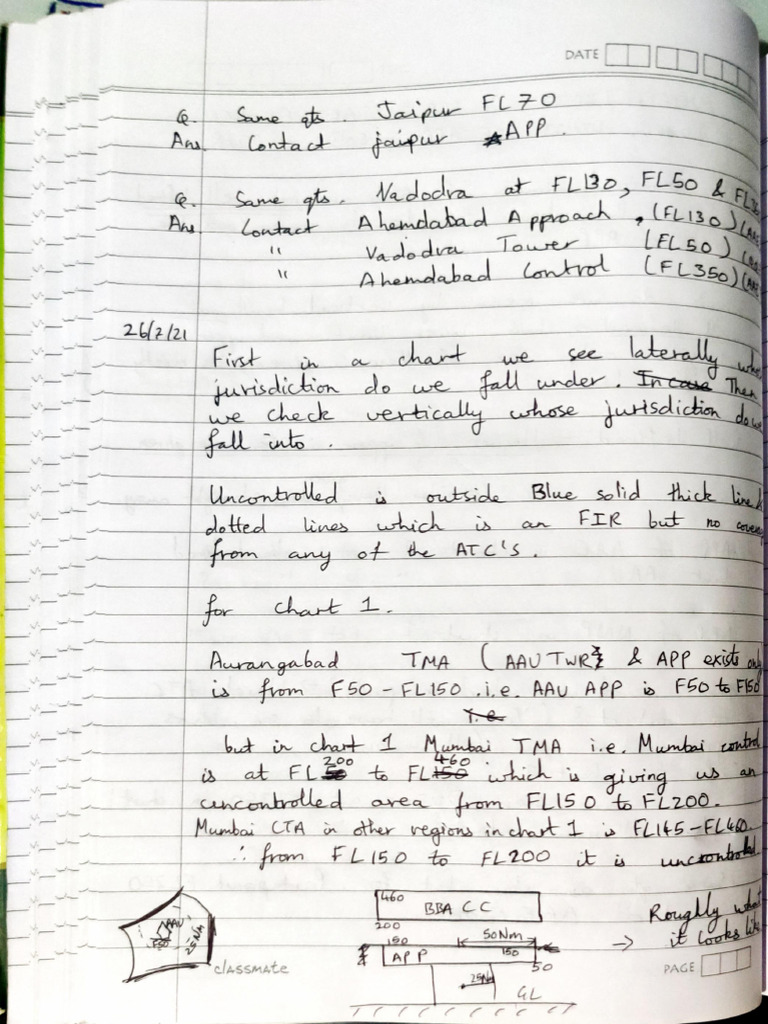 DATE
Q. Same qts. Jaipur FL70
Ans. Contact jaipur APP.
Q. Same qts. Vadodra at FL130, FL50 &
Ans. Contact Ahemdabad Approach, (FL130)
" Vadodra Tower (FL50)
" Ahemdabad Control (FL350)
26/7/21
First in a chart we see laterally
jurisdiction do we fall under. In case Then
we check vertically whose jurisdiction do we
fall into.
Uncontrolled is outside Blue solid thick line &
dotted lines which is an FIR but no
from any of the ATC'S.
for chart 1.
Aurangabad TMA (AAU TWR & APP exists only
is from F50 - FL150 .i.e. AAU APP is F50 to F150
i.e
but in chart 1 Mumbai TMA i.e. Mumbai control
is at FL 200 to FL 460 which is giving us an
uncontrolled area from FL150 to FL200.
Mumbai CTA in other regions in chart 1 is FL145-FL460.
∴ from FL150 to FL200 it is uncontrolled
460
BBA CC
200
150
50Nm
APP
150
50
25Nm
GL
AAU
25NM
→ Roughly what
it looks like
classmate
PAGE